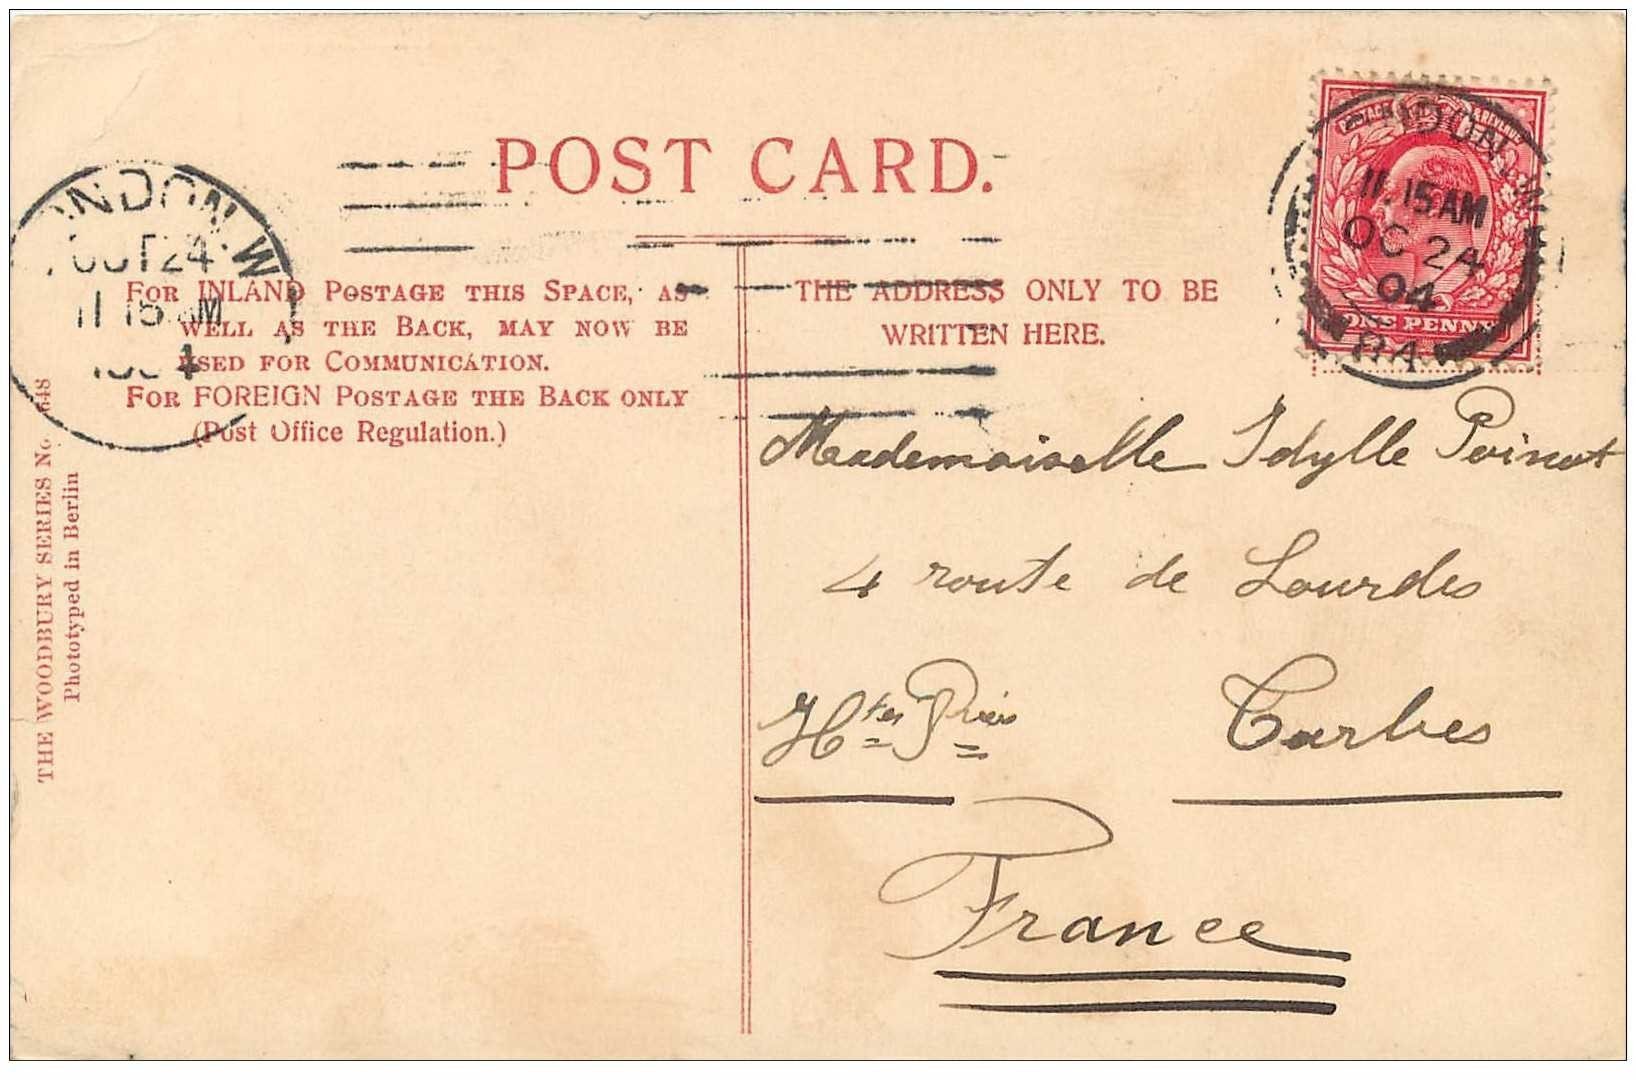 POST CARD.
LONDON.W
OCT 24
11 15 AM
1904
LONDON.W
11.15 AM
OC 24
04
ONE PENNY
For INLAND Postage this Space, as
well as the Back, may now be
used for Communication.
For FOREIGN Postage the Back only
(Post Office Regulation.)
THE ADDRESS ONLY TO BE
WRITTEN HERE.
THE WOODBURY SERIES No. 648
Phototyped in Berlin
Mademoiselle Idylle Poinsot
4 route de Lourdes
Htes Prées Tarbes
France